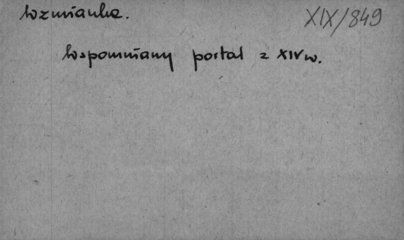 Wzmianka.
XIX/849
Wspomniany portal z XIV w.